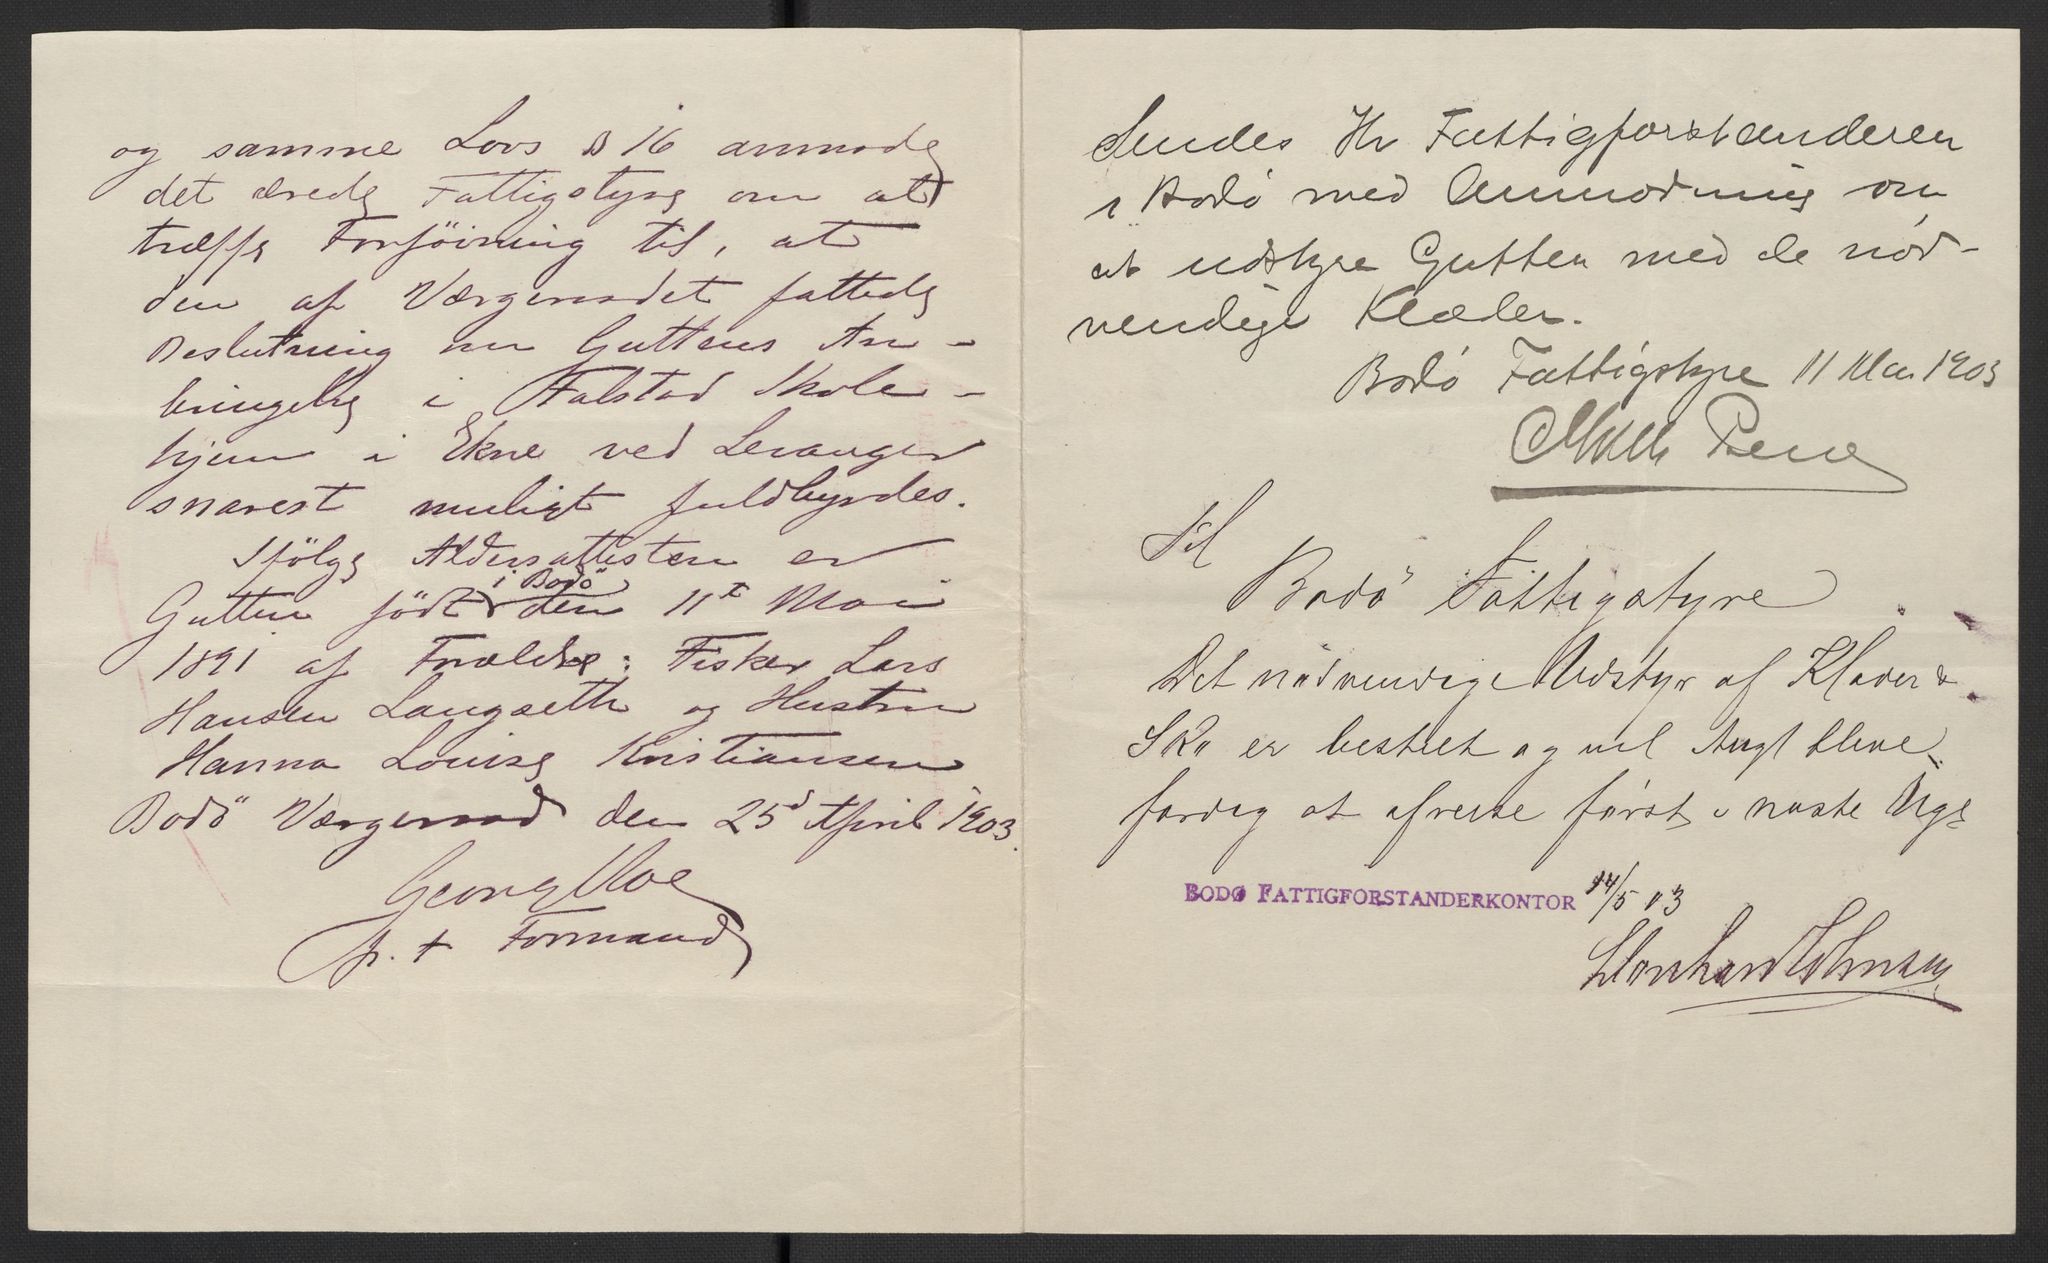 og samme Lovs § 16 anmode
det ærede Fattigstyre om at
træffe Forföining til, at
den af Værgeraadet fattede
Beslutning om Guttens An-
bringelse i Falstad Skole-
hjem i Ekne ved Levanger
snarest muligt fuldbyrdes.
Ifölge Aldersattesten er
i Bodö
Gutten födt den 11te Mai
1891 af Forældre: Fisker Lars
Hansen Langseth og Hustru
Hanna Louise Kristiansen
Bodö Værgeraad den 25d April 1903.
Georg Moe
p. t Formand
Sendes Hr Fattigforstanderen
i Bodó med Anmodning om
at udstyre Gutten med de nód-
vendige Klæder.
Bodó Fattigstyre 11 Mai 1903
Til
Bodö Fattigstyre
Det nödvendige Udstyr af Klæder &
Sko er bestilt og vil Augl blive
færdig at afreise först i næste Uge
BODØ FATTIGFORSTANDERKONTOR 14/5 03